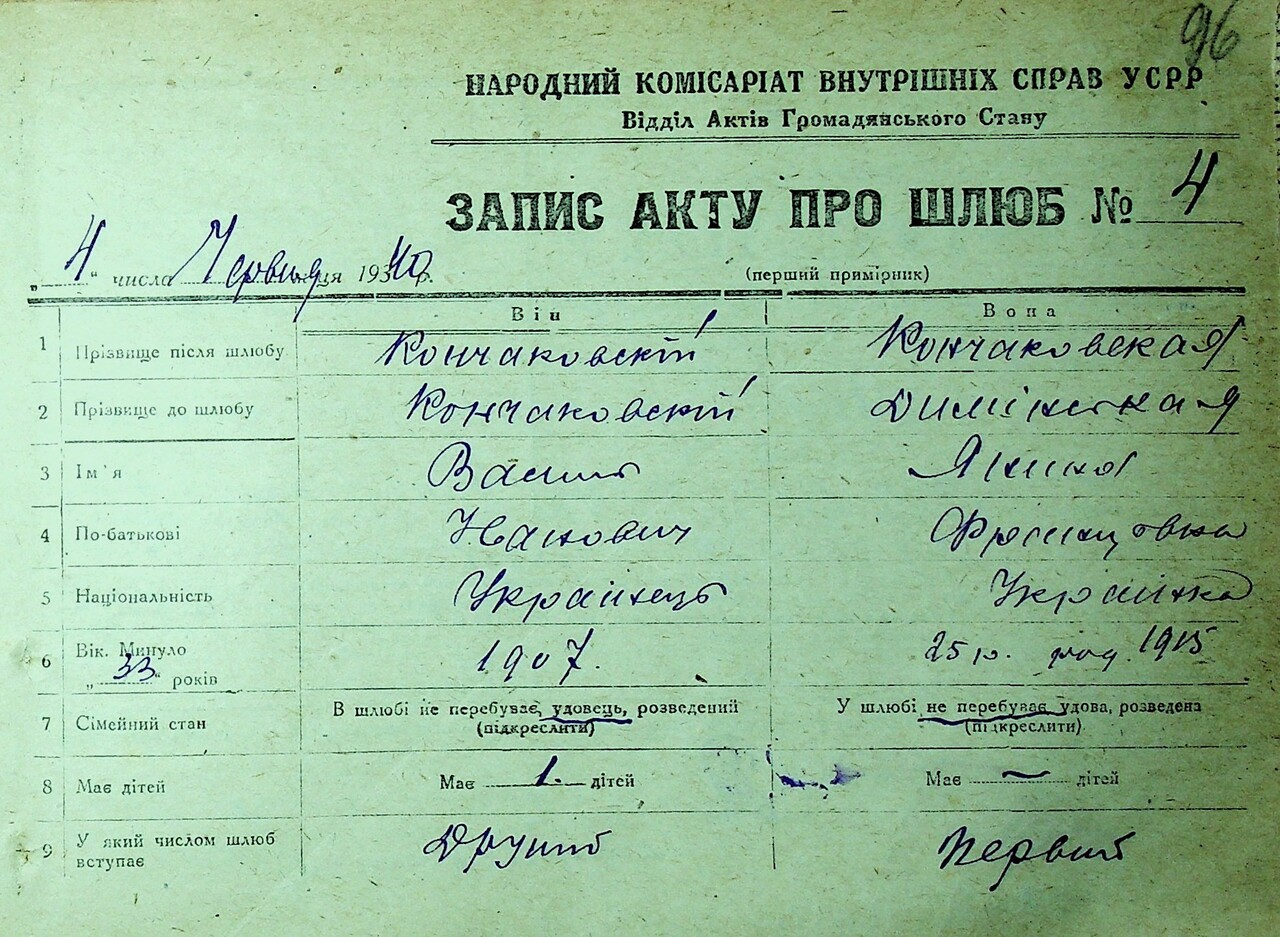 96
НАРОДНИЙ КОМІСАРІАТ ВНУТРІШНІХ СПРАВ УСРР
Відділ Актів Громадянського Стану
ЗАПИС АКТУ ПРО ШЛЮБ № 4
„4“ числа Червня місяця 1940 р.
(перший примірник)
Він Вона
1 Прізвище після шлюбу Кончаковскій Кончаковская
2 Прізвище до шлюбу Кончаковскій Димінская
3 Ім'я Василь Янина
4 По-батькові Іванович Францовна
5 Національність Українець Українка
6 Вік. Минуло „33“ років 1907. 25 р. род. 1915
7 Сімейний стан В шлюбі не перебуває, удовець, розведений (підкреслити) У шлюбі не перебуває удова, розведена (підкреслити)
8 Має дітей Має 1. дітей Має — дітей
9 У який числом шлюб вступає Другий Первий